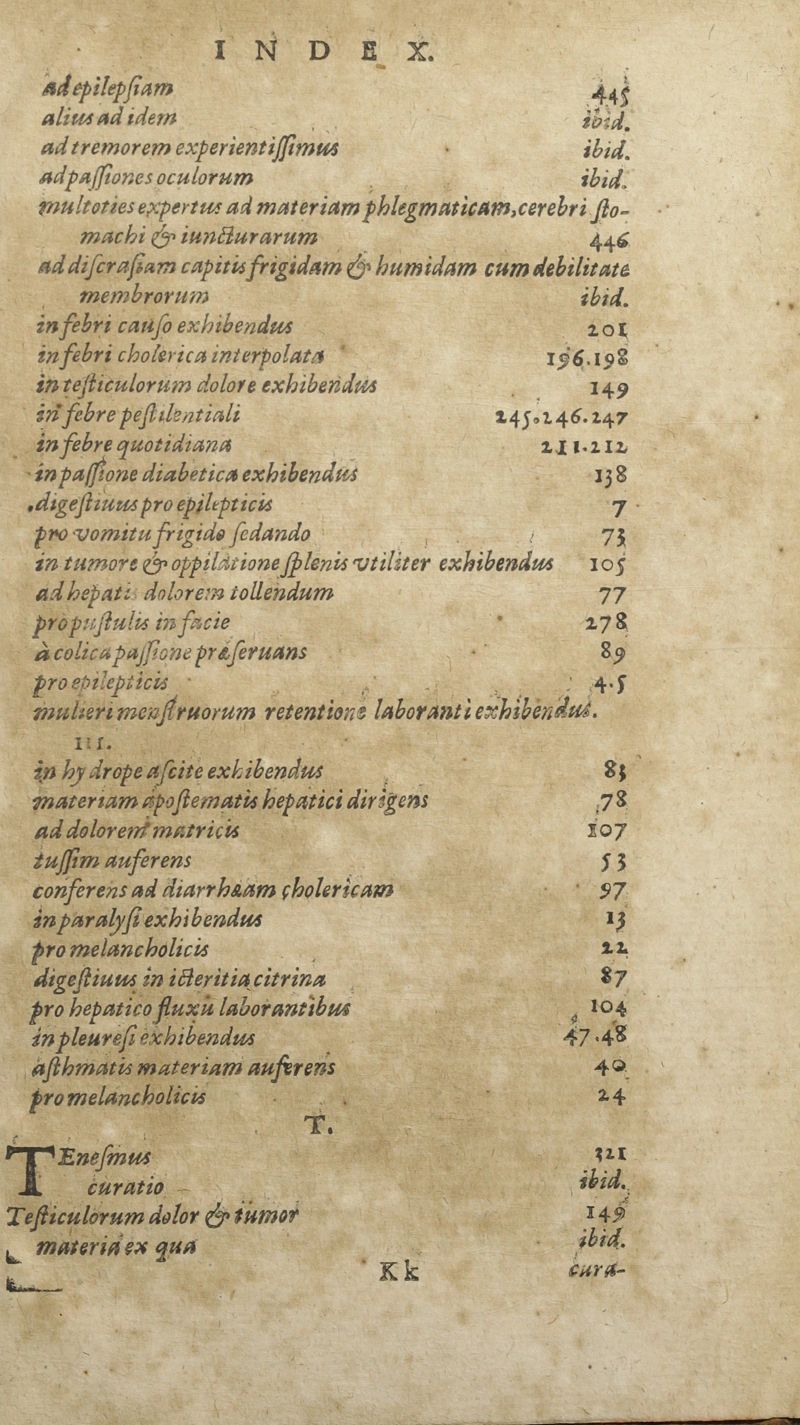 INDEX.
ad epilepſiam 445
alius ad idem ibid.
ad tremorem experientiſſimus ibid.
ad paſſiones oculorum ibid.
multoties expertus ad materiam phlegmaticam, cerebri ſto-
machi & iuncturarum 446
ad diſcraſiam capitis frigidam & humidam cum debilitate
membrorum ibid.
in febri cauſo exhibendus 201
in febri cholerica interpolata 196.198
in teſticulorum dolore exhibendus 149
in febre peſtilentiali 245.246.247
in febre quotidiana 211.212
in paſſione diabetica exhibendus 138
digeſtiuus pro epilepticis 7
pro vomitu frigido ſedando 73
in tumore & oppilatione ſplenis vtiliter exhibendus 105
ad hepatis dolorem tollendum 77
pro puſtulis in facie 278
à colica paſſione præſeruans 89
pro epilepticis 4.5
mulieri menſtruorum retentione laboranti exhibendus.
111.
in hydrope aſcite exhibendus 83
materiam apoſtematis hepatici dirigens 78
ad dolorem matricis 107
tuſſim auferens 53
conferens ad diarrhæam cholericam 97
in paralyſi exhibendus 13
pro melancholicis 22
digeſtiuus in icteritia citrina 87
pro hepatico fluxu laborantibus 104
in pleureſi exhibendus 47.48
aſthmatis materiam auferens 40
pro melancholicis 24
T.
TEneſmus 321
curatio ibid.
Teſticulorum dolor & tumor 149
materia ex qua ibid.
Kk cura-